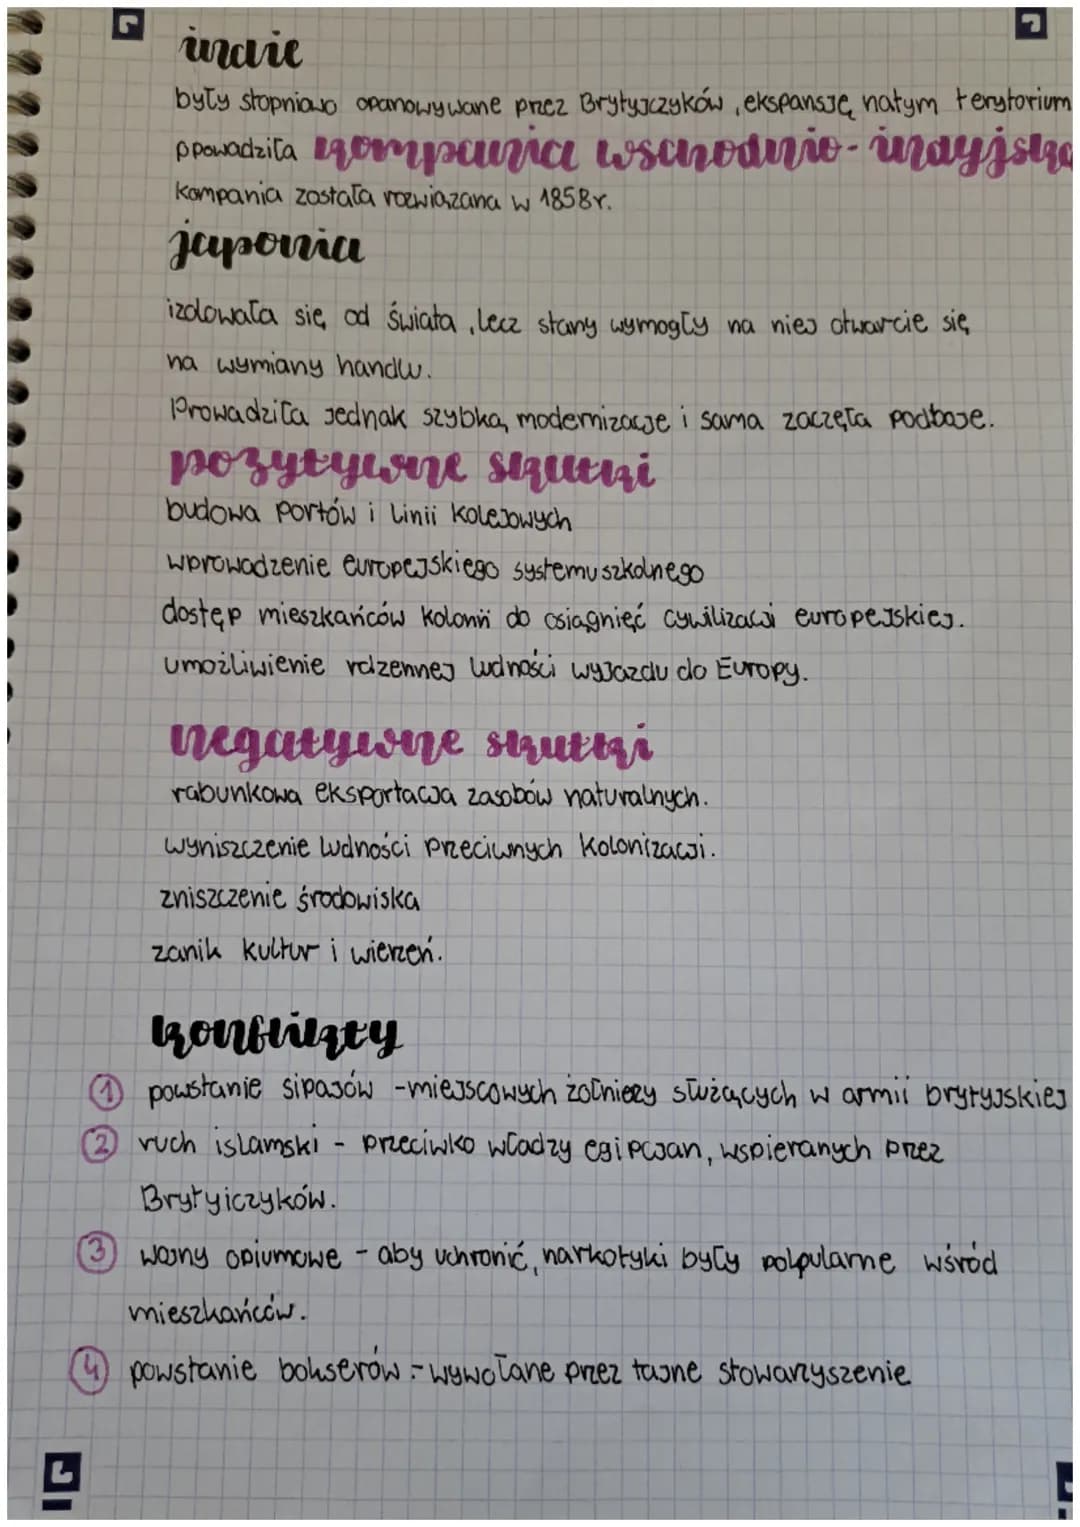 indie
były stopniowo opanowywane przez Brytyjczyków, ekspansję natym terytorium
ppowadziła kompania wschodnio-indyjska
kompania została rozwiązana w 1858r.
japonia
izolowała się od świata, lecz stany wymogły na niej otwarcie się
na wymiany handlu.
Prowadziła jednak szybką modernizacje i sama zaczęła podboje.
pozytywne skutki
budowa portów i linii kolejowych
wprowadzenie europejskiego systemu szkolnego
dostęp mieszkańców kolonii do osiągnięć cywilizacji europejskiej.
umożliwienie rdzennej ludności wyjazdu do Europy.
negatywne skutki
rabunkowa eksportacja zasobów naturalnych.
wyniszczenie ludności przeciwnych kolonizacji.
zniszczenie środowiska
zanik kultur i wierzeń.
konflikty
1 powstanie sipajów - miejscowych żołnierzy służących w armii brytyjskiej
2 ruch islamski - przeciwko władzy egipcjan, wspieranych przez
Brytyjczyków.
3 wojny opiumowe - aby uchronić, narkotyki były polpularne wśród
mieszkańców.
4 powstanie bokserów - wywołane przez tajne stowarzyszenie